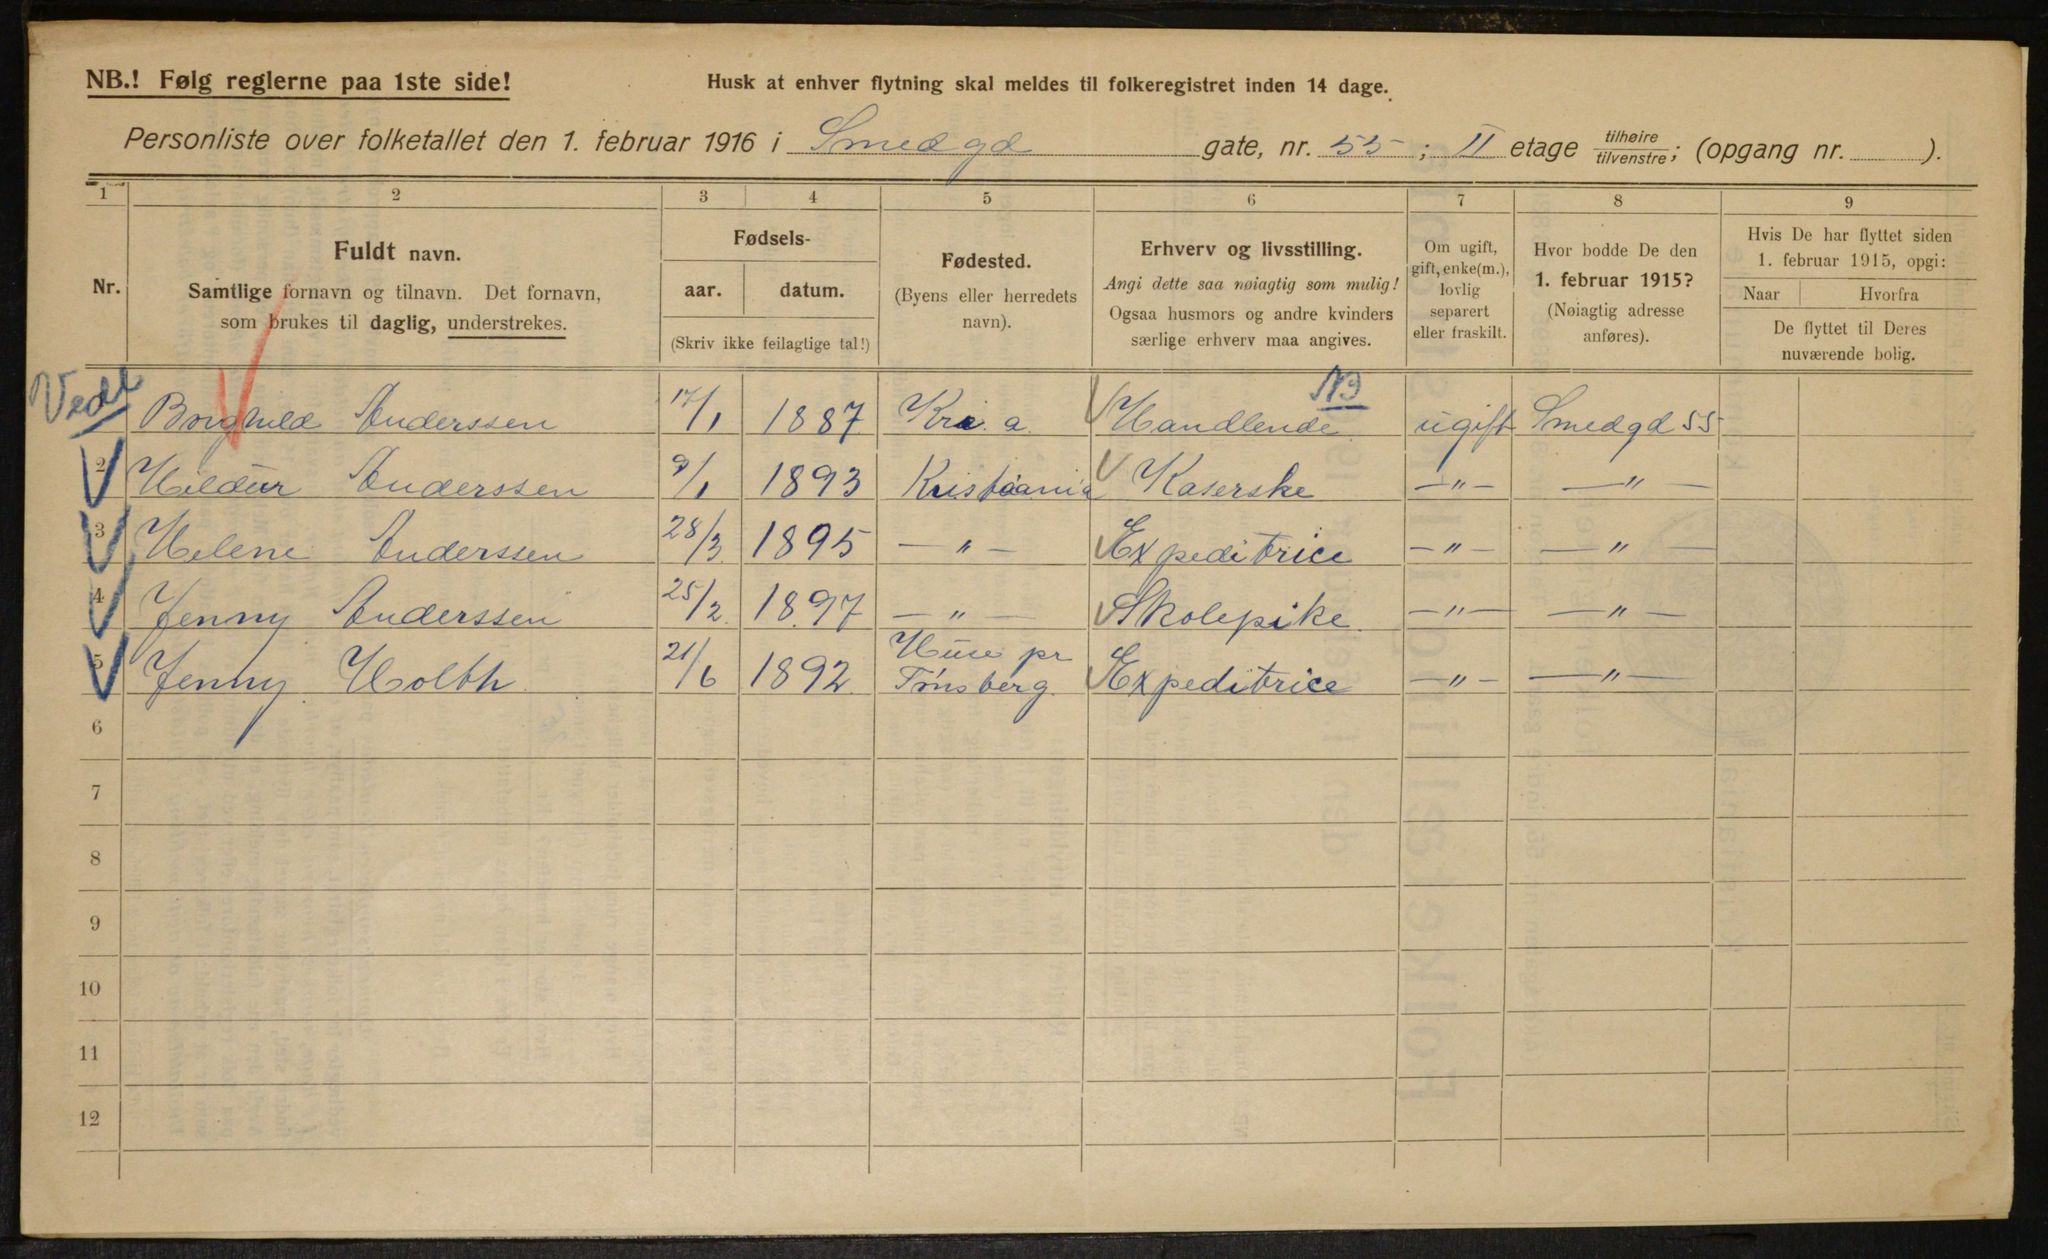 NB.! Følg reglerne paa 1ste side!
Husk at enhver flytning skal meldes til folkeregistret inden 14 dage.
Personliste over folketallet den 1. februar 1916 i Smedgd gate, nr. 55 ; II etage tilhøire/tilvenstre; (opgang nr. ).
1 2 3 4 5 6 7 8 9
Nr.
Fuldt navn.
Samtlige fornavn og tilnavn. Det fornavn,
som brukes til daglig, understrekes.
Fødsels-
aar. datum.
(Skriv ikke feilagtige tal!)
Fødested.
(Byens eller herredets
navn).
Erhverv og livsstilling.
Angi dette saa nøiagtig som mulig!
Ogsaa husmors og andre kvinders
særlige erhverv maa angives.
Om ugift,
gift, enke(m.),
lovlig
separert
eller fraskilt.
Hvor bodde De den
1. februar 1915?
(Nøiagtig adresse
anføres).
Hvis De har flyttet siden
1. februar 1915, opgi:
Naar Hvorfra
De flyttet til Deres
nuværende bolig.
NB
Borghild Anderssen 17/1 1887 Kria. a. Handlende ugift Smedgd 55
2 Hildur Anderssen 9/1 1893 Kristiania Kaserske —"— —"—
3 Helene Anderssen 28/3 1895 —"— Expeditrice —"— —"—
4 Jenny Anderssen 25/2 1897 —"— Skolepike —"— —"—
5 Jenny Holth 21/6 1892 Huse pr Tønsberg Expeditrice —"— —"—
6
7
8
9
10
11
12